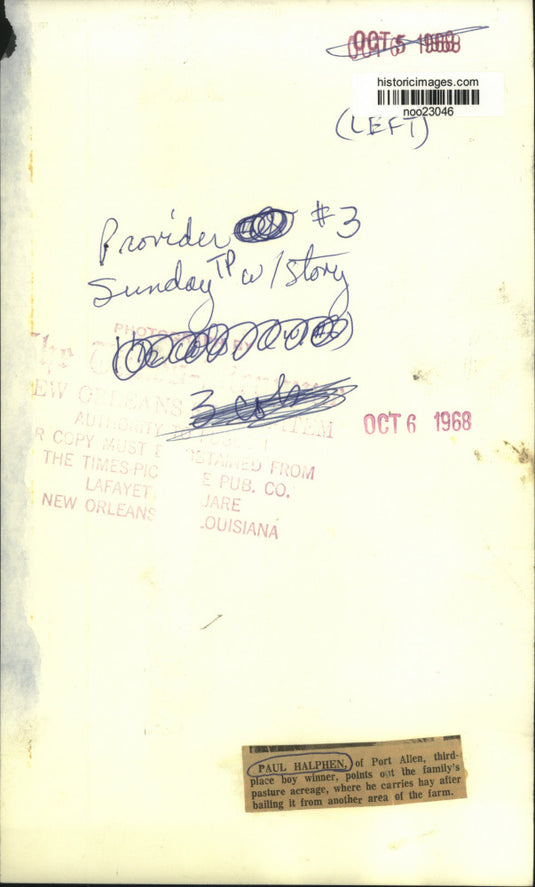 OCT 5 1968
historicimages.com
noo23046
(LEFT)
Provider #3
Sunday TP w/story
PHOTOGRAPH BY
The
NEW ORLEANS ITEM
AUTHORITY TO
R COPY MUST BE OBTAINED FROM
THE TIMES-PIC E PUB. CO.
LAFAYET UARE
NEW ORLEANS LOUISIANA
3 cols
OCT 6 1968
PAUL HALPHEN, of Port Allen, third-
place boy winner, points out the family's
pasture acreage, where he carries hay after
bailing it from another area of the farm.